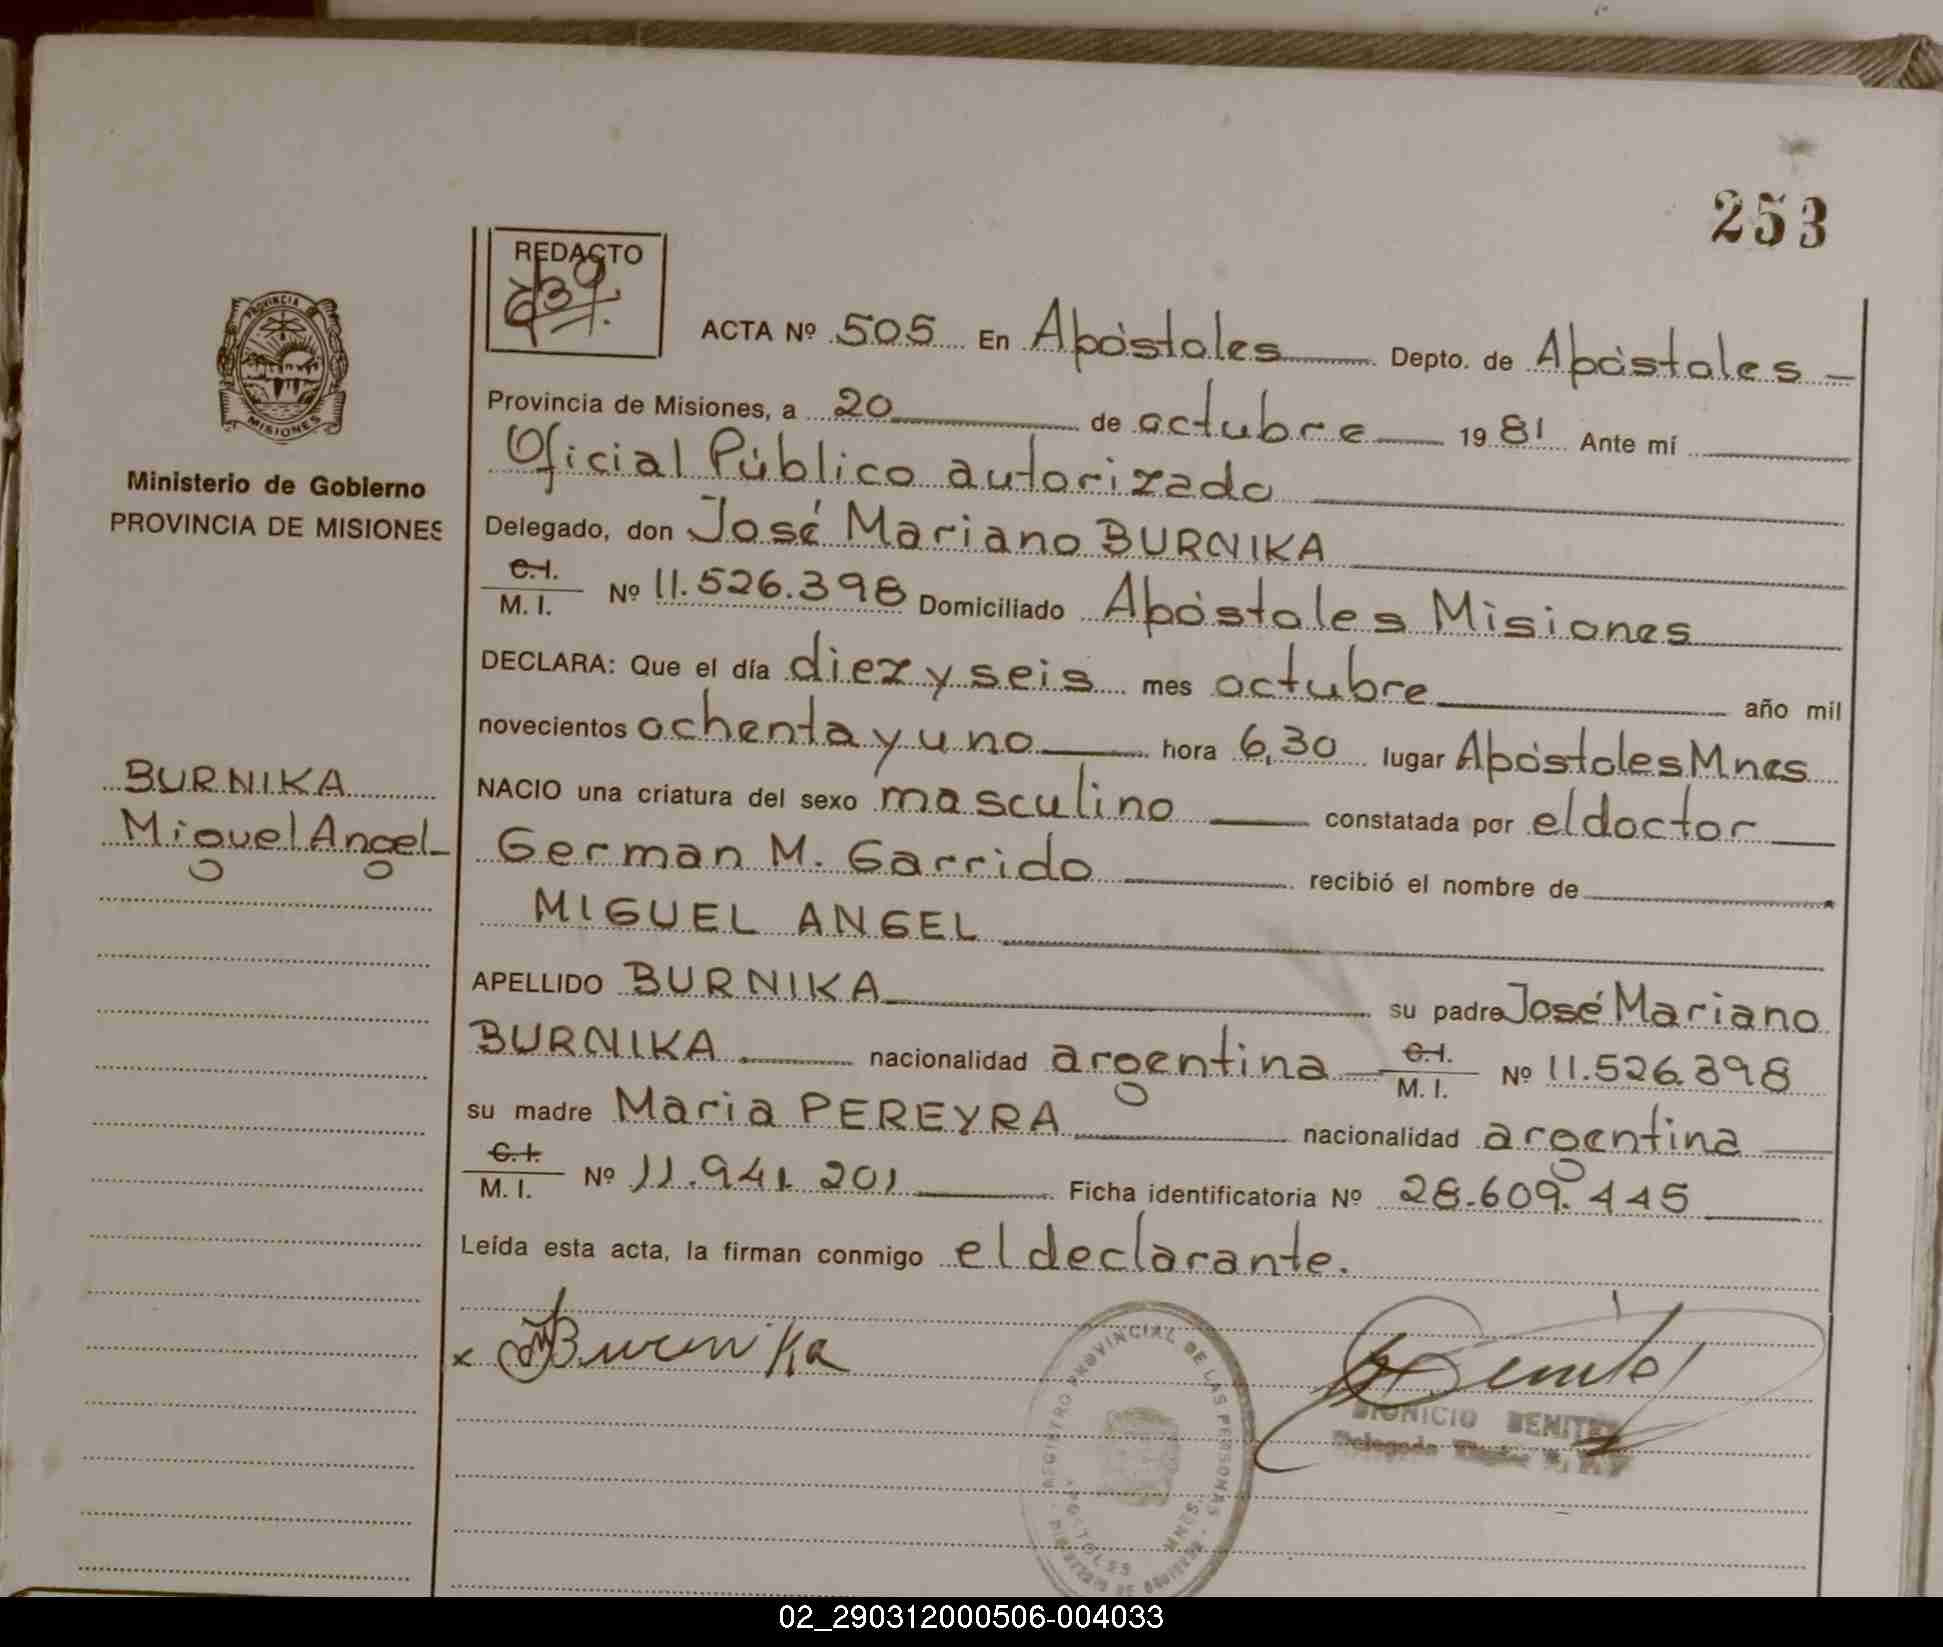 253
REDACTO
ACTA Nº 505 En Apóstoles Depto. de Apóstoles
PROVINCIA
MISIONES
Provincia de Misiones, a 20 de octubre 1981 Ante mí
Oficial Público autorizado
Ministerio de Gobierno
PROVINCIA DE MISIONES
Delegado, don José Mariano BURNIKA
C.I.
M. I. Nº 11.526.398 Domiciliado Apóstoles Misiones
DECLARA: Que el día diez y seis mes octubre año mil
novecientos ochenta y uno hora 6,30 lugar Apóstoles Mnes
BURNIKA
Miguel Angel
NACIO una criatura del sexo masculino constatada por el doctor
German M. Garrido recibió el nombre de
MIGUEL ANGEL
APELLIDO BURNIKA su padre José Mariano
BURNIKA nacionalidad argentina C.I. M. I. Nº 11.526.398
su madre Maria PEREYRA nacionalidad argentina
C.I.
M. I. Nº 11.941.201 Ficha identificatoria Nº 28.609.445
Leída esta acta, la firman conmigo el declarante.
x JMBurnika
REGISTRO PROVINCIAL DE LAS PERSONAS
APOSTOLES MNES.
MINISTERIO DE GOBIERNO
DIONICIO BENITEZ
Delegado
02_290312000506-004033